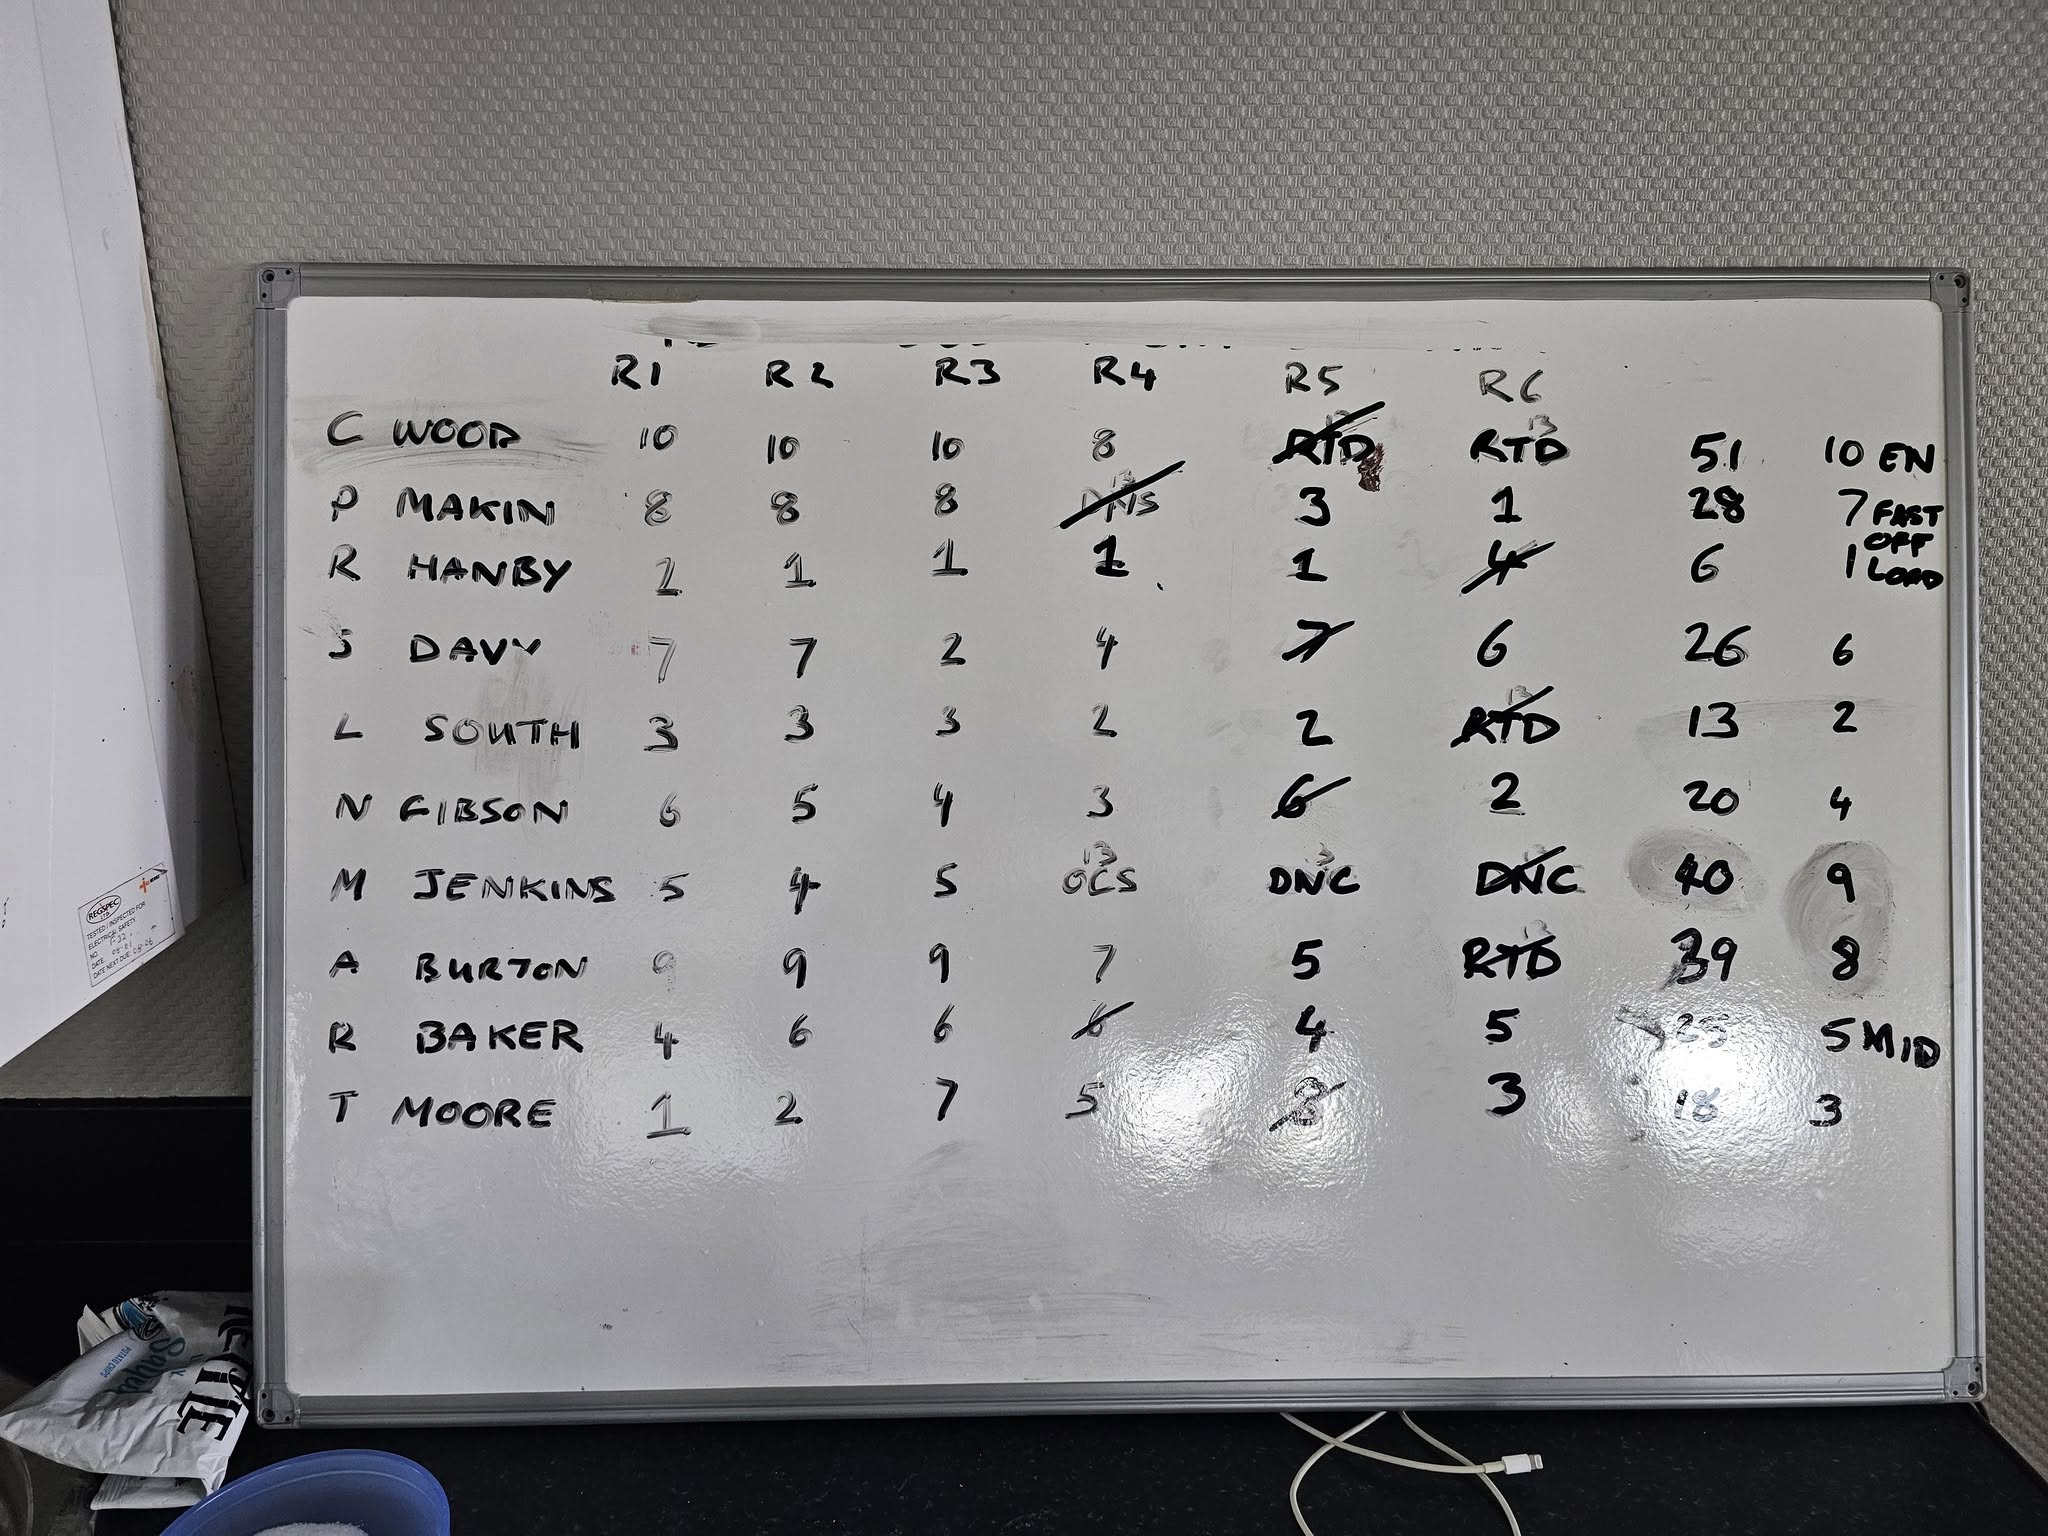 R1 R2 R3 R4 R5 R6
C WOOD 10 10 10 8 RTD RTD 13 51 10 EN
P MAKIN 8 8 8 DNS 13 3 1 28 7 FAST
OFF
R HANBY 2 1 1 1 1 4 6 1 LOAD
S DAVY 7 7 2 4 7 6 26 6
L SOUTH 3 3 3 2 2 RTD 13 13 2
N GIBSON 6 5 4 3 6 2 20 4
M JENKINS 5 4 5 OCS 13 DNC 13 DNC 40 9
A BURTON 9 9 9 7 5 RTD 13 39 8
R BAKER 4 6 6 6 4 5 25 5 MID
T MOORE 1 2 7 5 8 3 18 3
REGSPEC
LTD
TESTED / INSPECTED FOR
ELECTRICAL SAFETY
NO.
DATE
DATE NEXT DUE
POTATO CHIPS